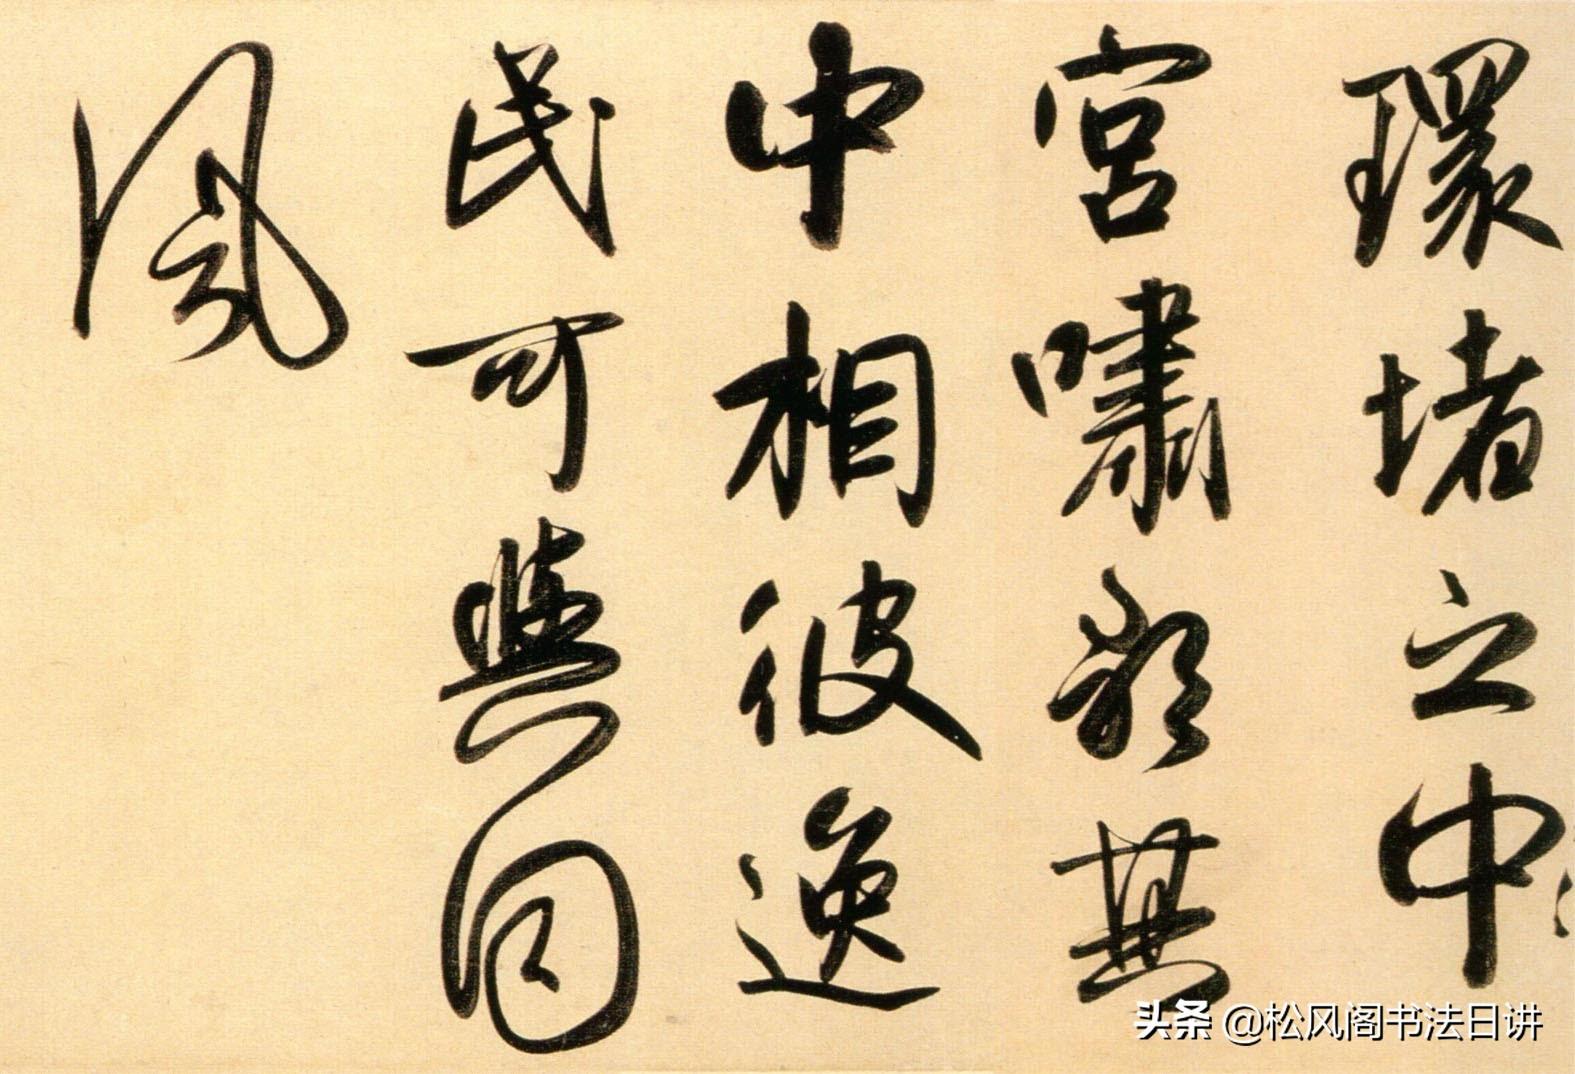 環堵之中
宮嘯歌其
中相彼逸
民可與同
風
头条 @松风阁书法日讲